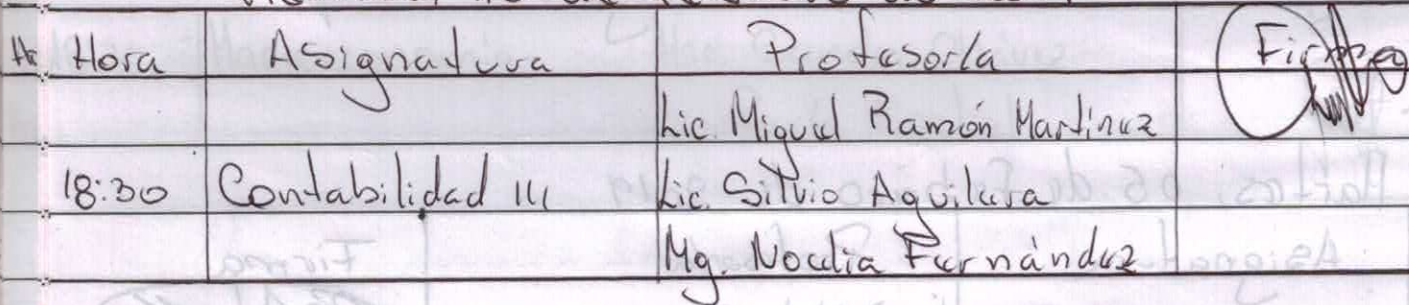 Hora Asignatura Profesor/a Firma
Lic. Miguel Ramón Martínez
18:30 Contabilidad III Lic. Silvio Aguilera
Mg. Noelia Fernández